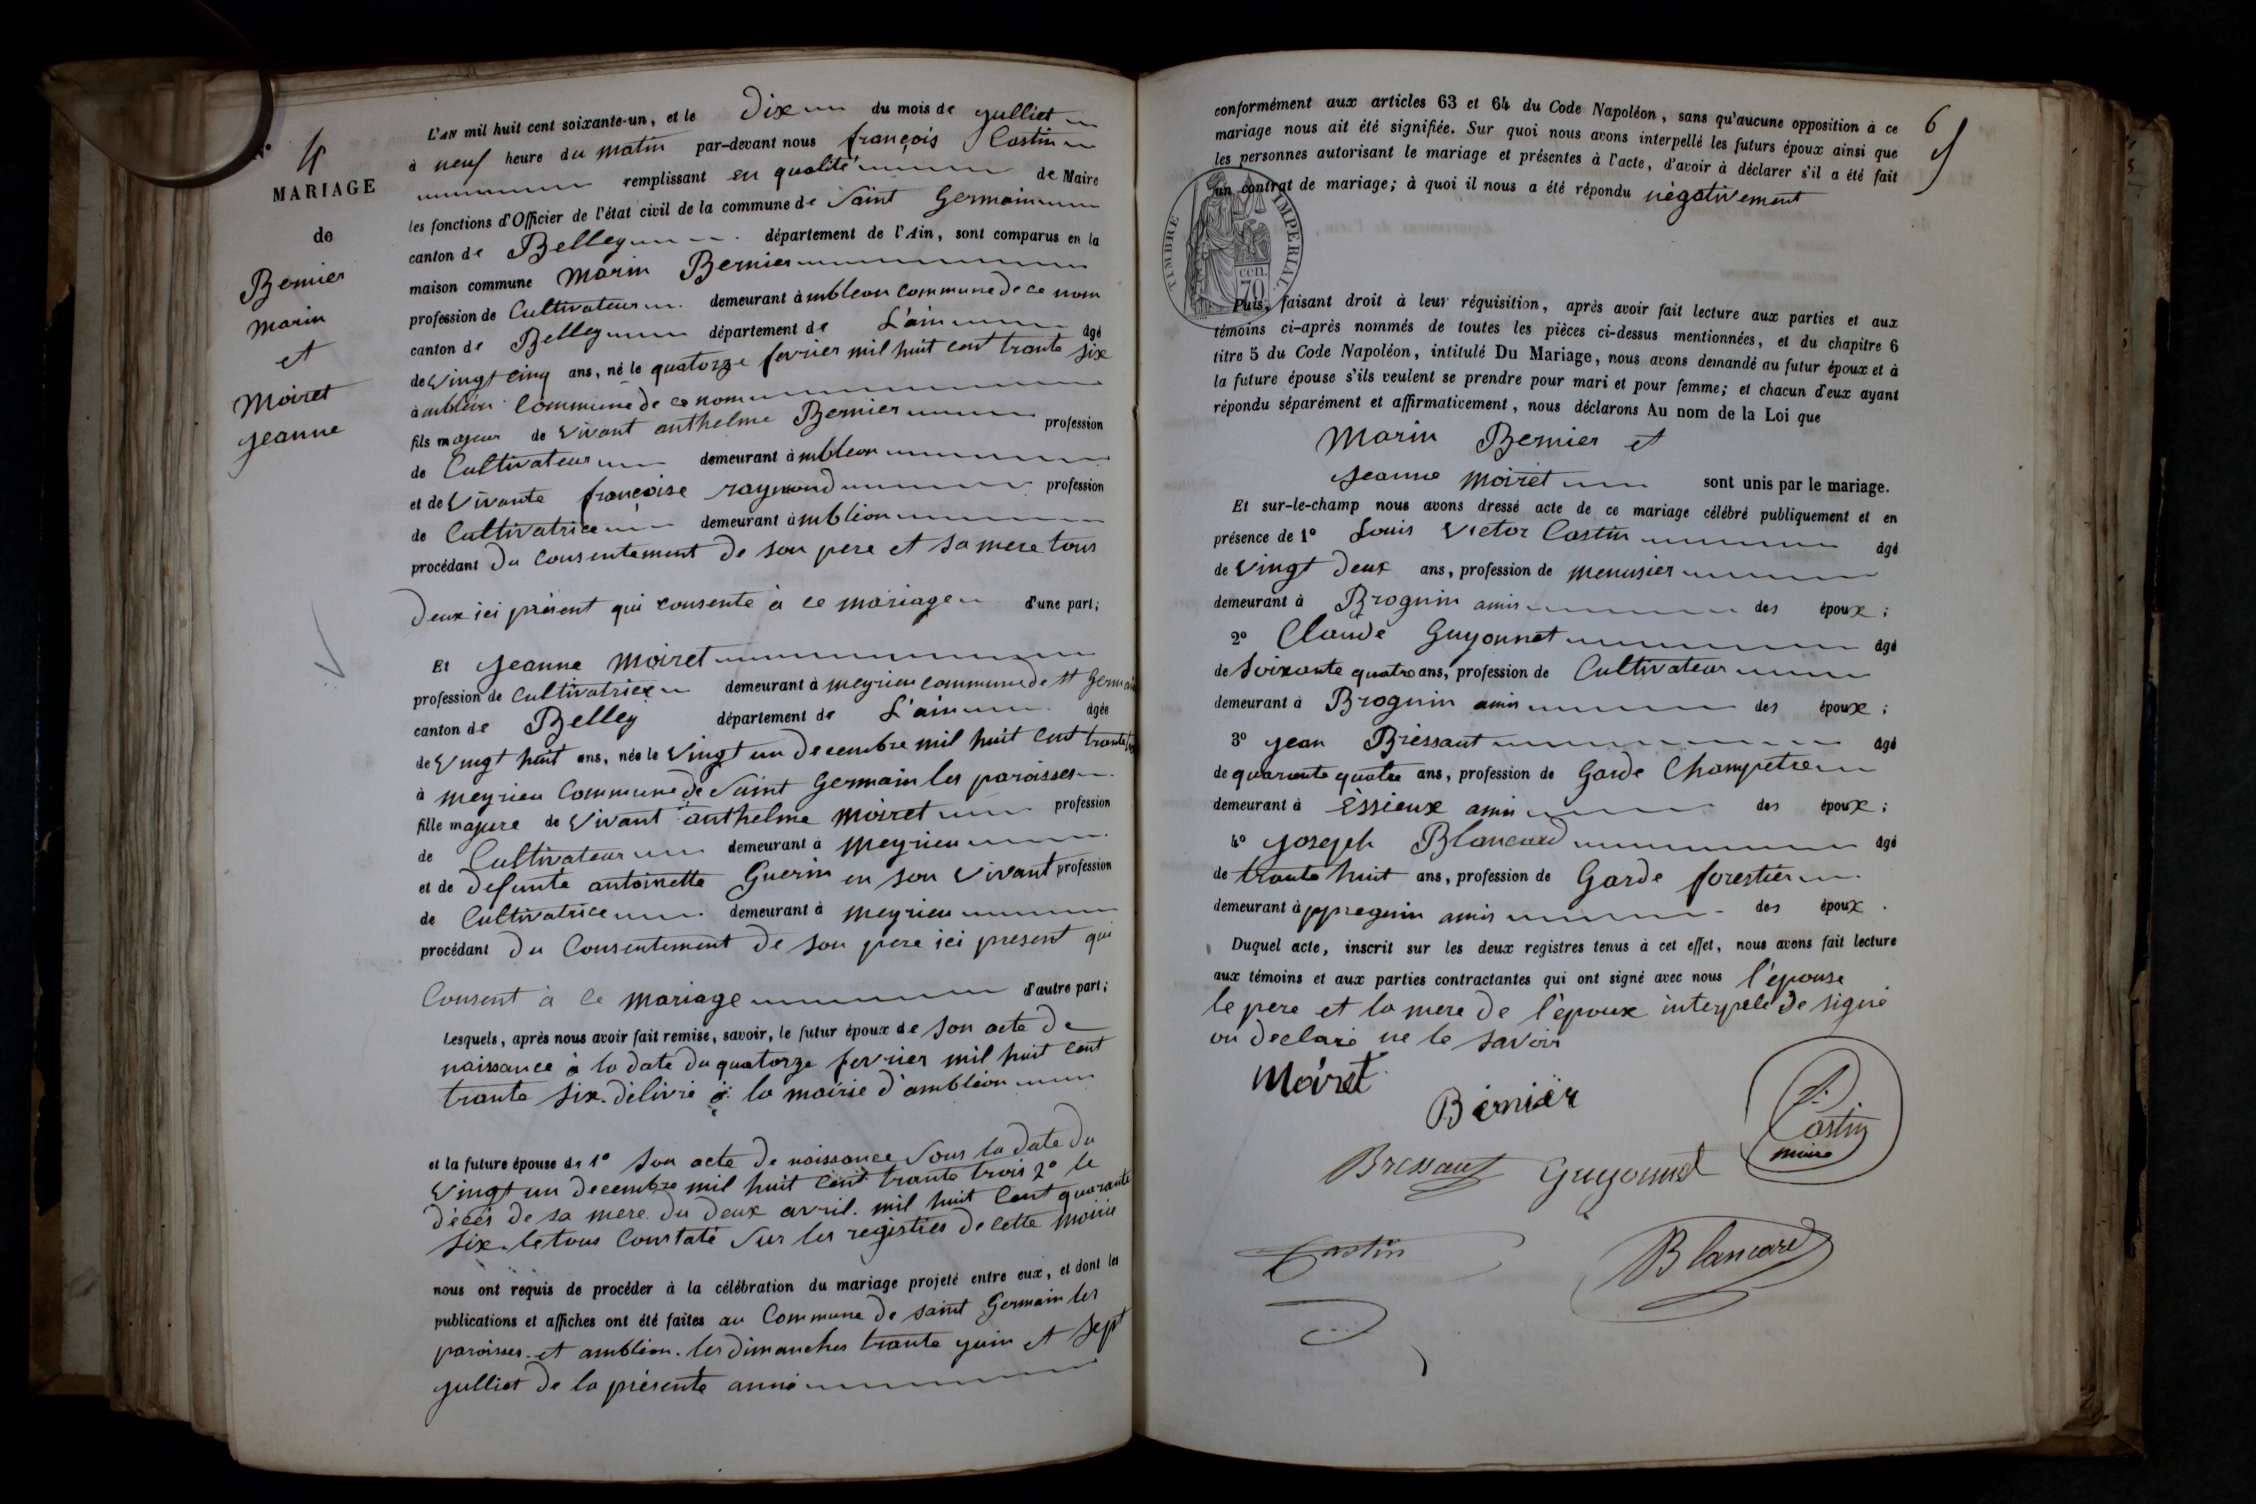 N° 4
MARIAGE
de
Bernier
marin
et
Moiret
jeanne
L'AN mil huit cent soixante-un, et le Dix du mois de julliet
à neuf heure du matin par-devant nous françois Castin
remplissant en qualité de Maire
les fonctions d'Officier de l'état civil de la commune de Saint Germain
canton de Belley département de l'Ain, sont comparus en la
maison commune Marin Bernier
profession de Cultivateur demeurant à ambleon commune de ce nom
canton de Belley département de L'ain âgé
de Vingt cinq ans, né le quatorze fevrier mil huit cent trante six
à ambléon Commune de ce nom
fils majeur de Vivant anthelme Bernier profession
de Cultivateur demeurant à ambleon
et de Vivante françoise raymond profession
de Cultivatrice demeurant à ambléon
procédant Du Consentement de son pere et sa mere tous
Deux ici présent qui consente à ce mariage d'une part;
Et jeanne Moiret
profession de Cultivatrice demeurant à meyrieu commune de st Germain
canton de Belley département de L'ain âgée
de Vingt huit ans, née le Vingt un Decembre mil huit cent trante
à meyrieu Commune de Saint Germain les paroisses
fille majure de Vivant anthelme Moiret profession
de Cultivateur demeurant à Meyrieu
et de defunte antoinette Guerin en son Vivant profession
de Cultivatrice demeurant à Meyrieu
procédant Du Consentement de son pere ici present qui
Consent à Ce mariage d'autre part;
Lesquels, après nous avoir fait remise, savoir, le futur époux de son acte de
naissance à la date du quatorze fevrier mil huit cent
trante six delivré à la mairie d'ambléon
et la future épouse de 1° Son acte de naissance sous la date du
Vingt un Decembre mil huit cent trante trois 2° le
décés de sa mere du deux avril mil huit Cent quarante
six le tous Constaté Sur les registres de cette Mairie
nous ont requis de procéder à la célébration du mariage projeté entre eux, et dont les
publications et affiches ont été faites au Commune de saint Germain les
paroisses et ambléon les Dimanches trante juin et Sept
julliet de la présente année
6
conformément aux articles 63 et 64 du Code Napoléon, sans qu'aucune opposition à ce
mariage nous ait été signifiée. Sur quoi nous avons interpellé les futurs époux ainsi que
les personnes autorisant le mariage et présentes à l'acte, d'avoir à déclarer s'il a été fait
un contrat de mariage; à quoi il nous a été répondu négativement
TIMBRE IMPERIAL
70 cen.
Puis, faisant droit à leur réquisition, après avoir fait lecture aux parties et aux
témoins ci-après nommés de toutes les pièces ci-dessus mentionnées, et du chapitre 6
titre 5 du Code Napoléon, intitulé Du Mariage, nous avons demandé au futur époux et à
la future épouse s'ils veulent se prendre pour mari et pour femme; et chacun d'eux ayant
répondu séparément et affirmativement, nous déclarons Au nom de la Loi que
Marin Bernier et
jeanne Moiret sont unis par le mariage.
Et sur-le-champ nous avons dressé acte de ce mariage célébré publiquement et en
présence de 1° Louis Victor Castin âgé
de Vingt Deux ans, profession de menusier
demeurant à Brognin amis des époux;
2° Claude Guyonnet âgé
de Soixante quatre ans, profession de Cultivateur
demeurant à Brognin amis des époux;
3° jean Bressant âgé
de quarante quatre ans, profession de Garde Champetre
demeurant à Essieux amis des époux;
4° joseph Blancard âgé
de trante huit ans, profession de Garde forestier
demeurant à amis des époux.
Duquel acte, inscrit sur les deux registres tenus à cet effet, nous avons fait lecture
aux témoins et aux parties contractantes qui ont signé avec nous l'épouse
le pere et la mere de l'époux interpelé De signé
on déclaré ne le Savoir
Moiret
Bérniér
Castin
maire
Bressant Guyonnet
Castin
Blancard